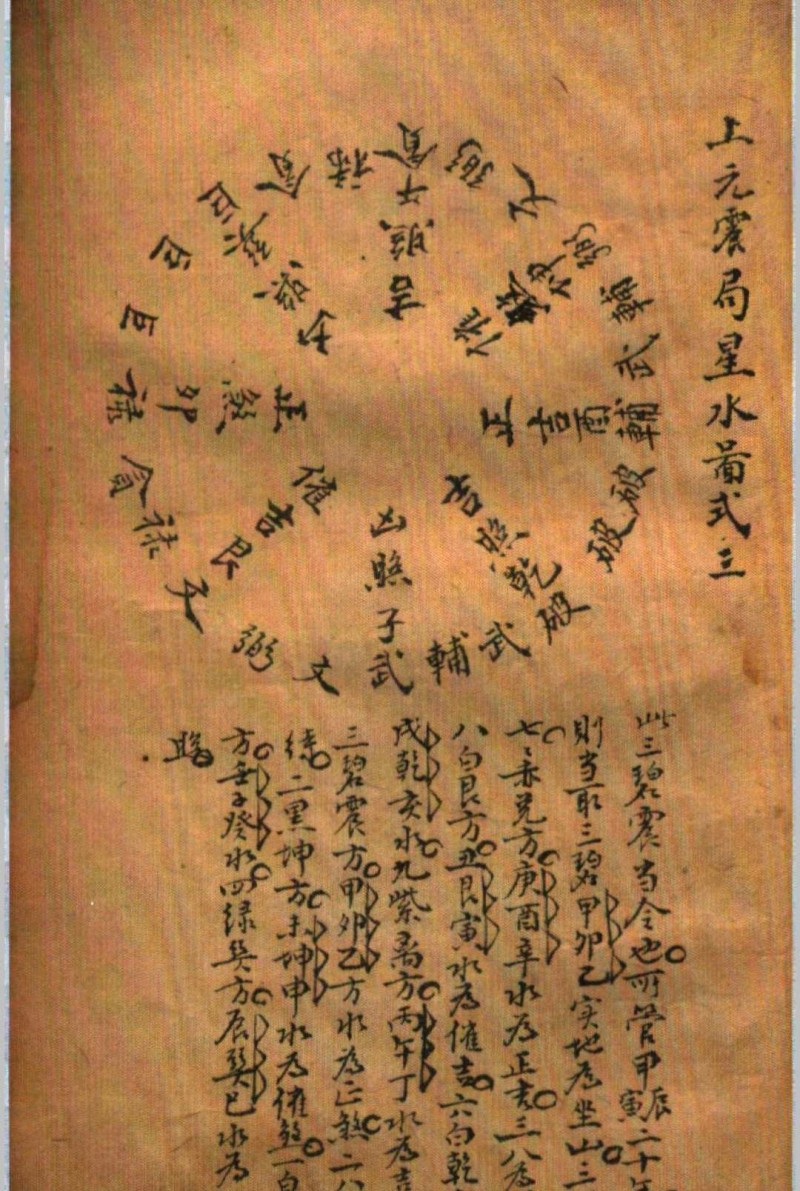 上元震局星水畨式三
此三碧震当令也所管甲辰寅二十年
則当取三碧甲卯乙实地為坐山三
七七赤兑方庚酉辛水為正吉三八為
八白艮方丑艮寅水為催吉六白乾
戌乾亥水九紫离方丙午丁水為吉
三碧震方甲卯乙方水為正煞二八
二黑坤方未坤申水為催煞一白
方壬子癸水四緑巽方辰巽巳水為
貪
午照吉
弼
文
輔
武
輔酉吉正
破
破
破乾照吉
武
輔
武子照凶
文
弼
文艮吉催
祿
貪
祿卯煞正
巨
巨
巨
貪
祿